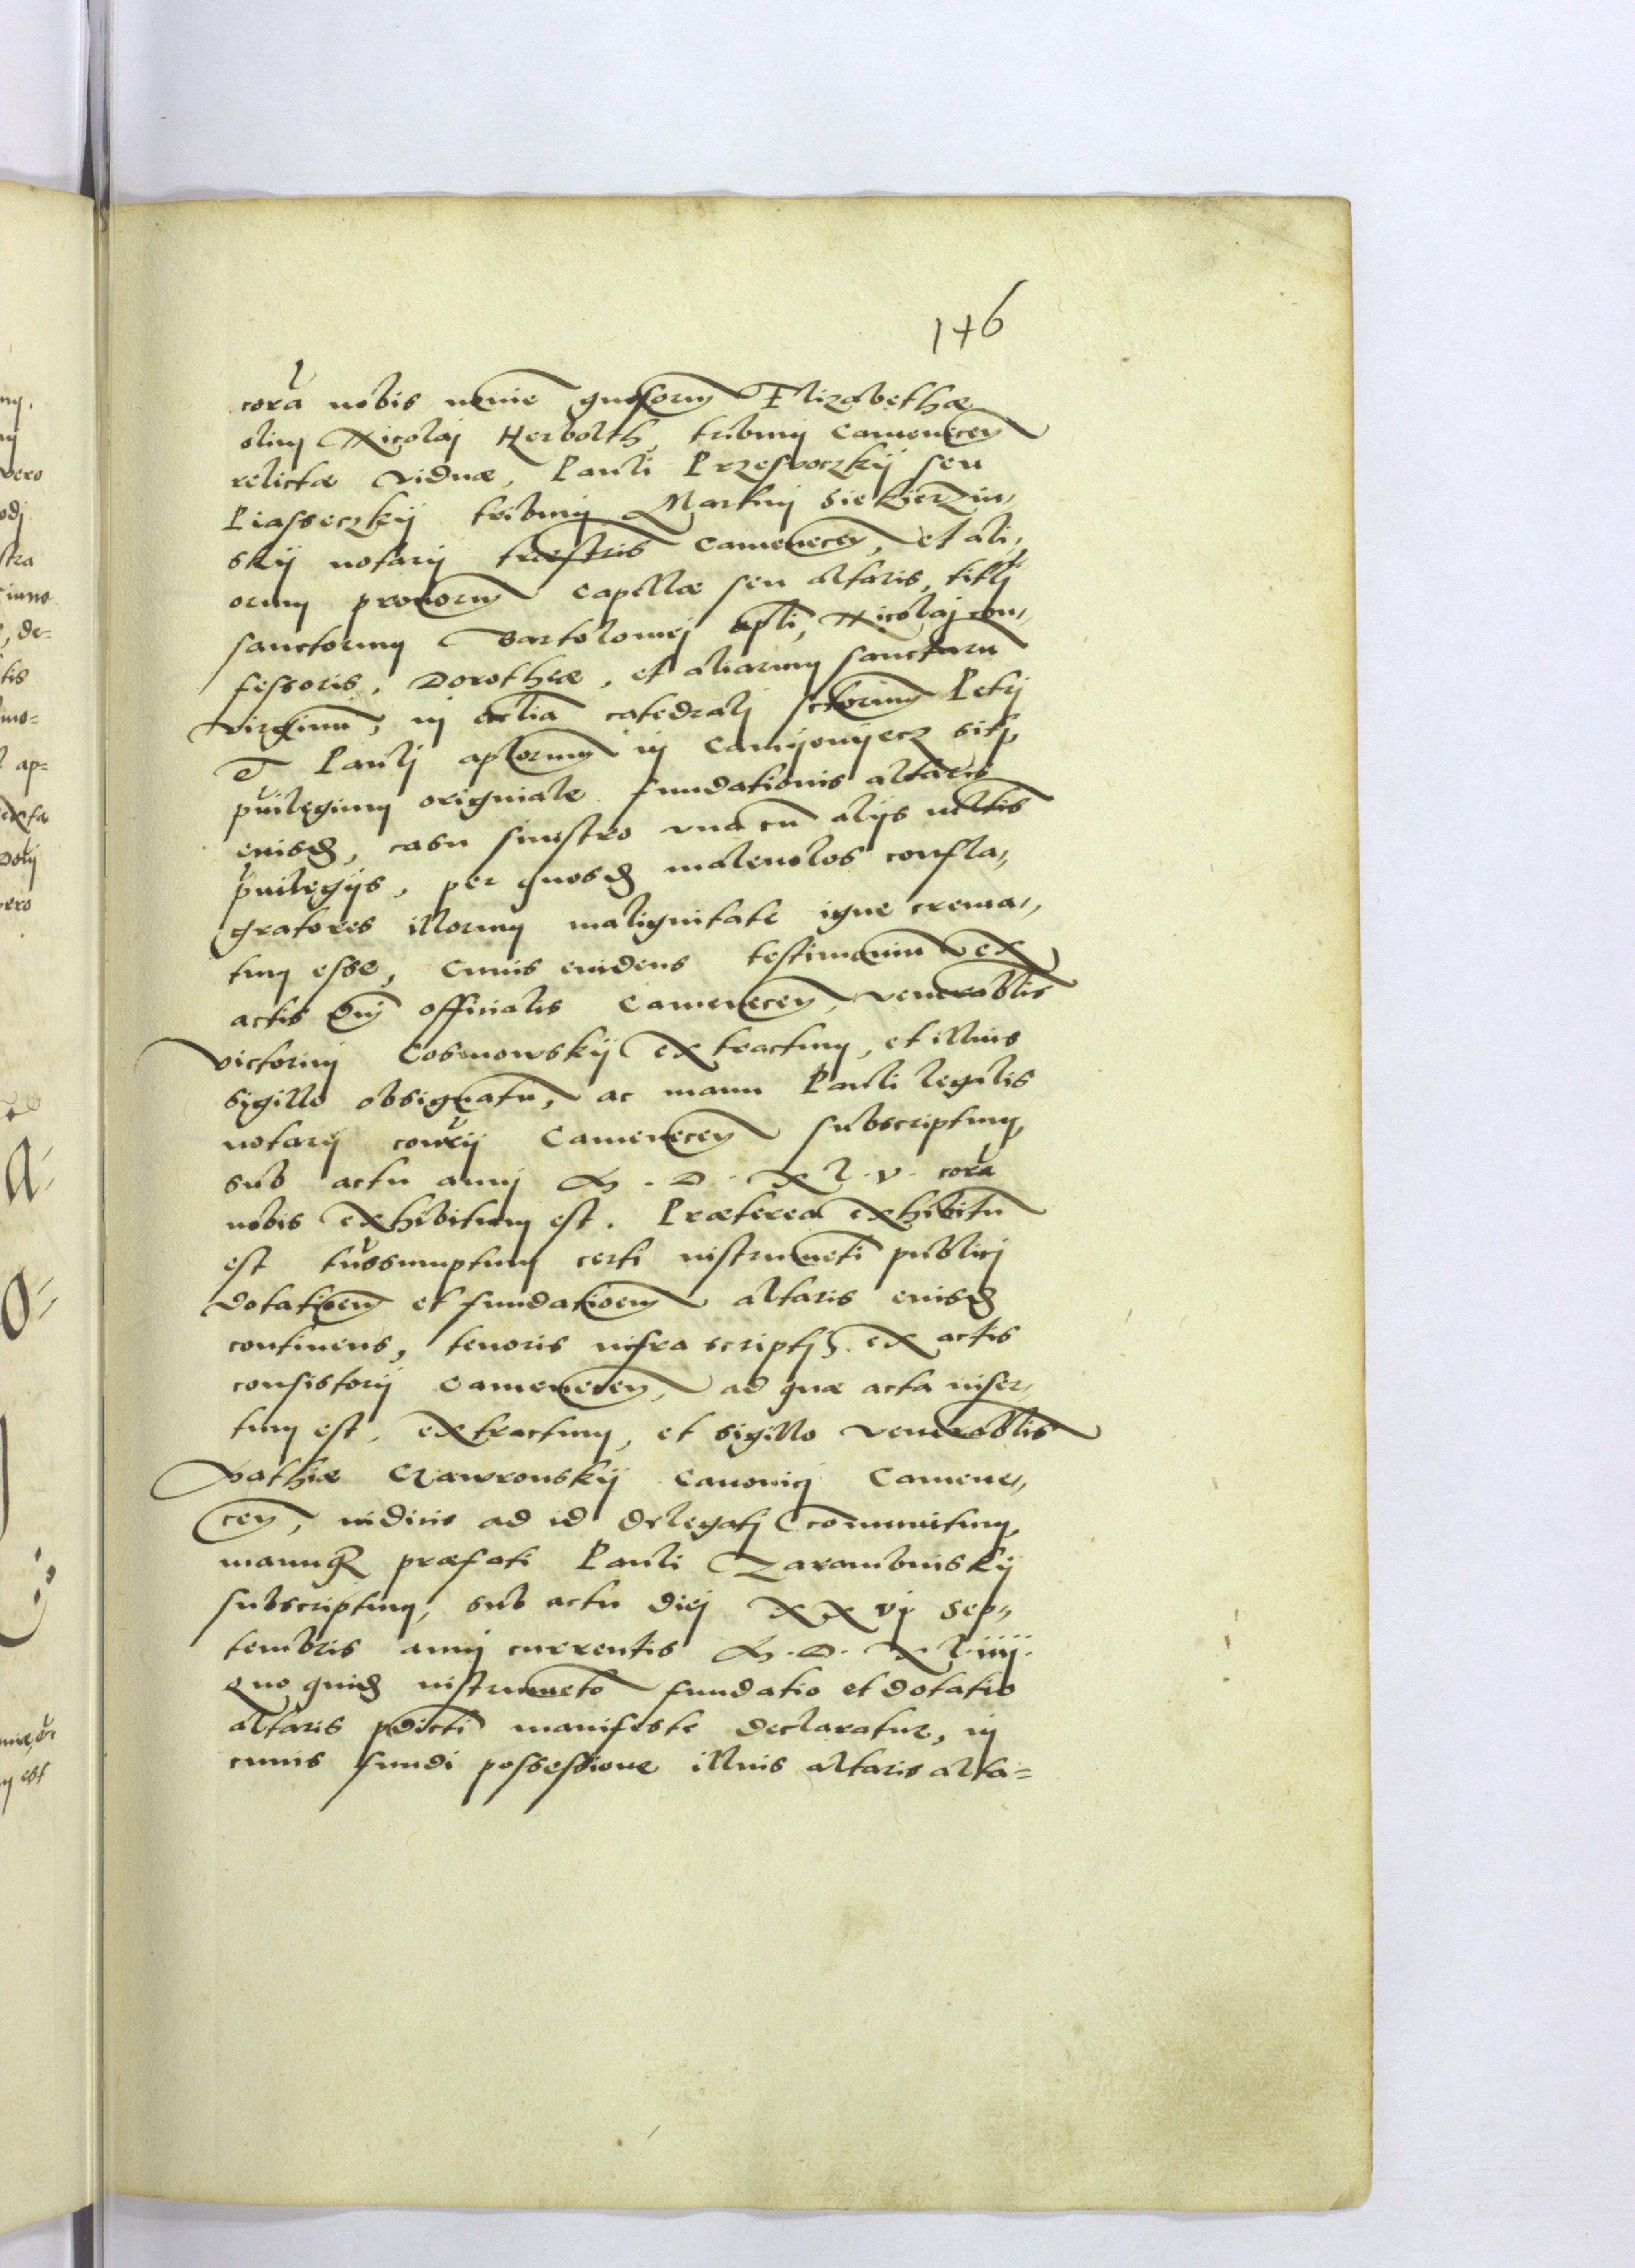 146
corā nobis noīe gnosorum Elizabethæ
olim Nicolaj Herbolth, tribunj Camenecen̄
relictæ viduæ, Pauli Przespoczkij seu
Piasseczkij tribunj Martinj Siekierzin,,
skij notarij trrestris Camenecen̄, et ali,,
orum prouorum Capellæ seu altaris, titlj
sanctorum Bartolomej apli, Nicolaj con,,
fessoris, Dorotheæ, et aliarum sanctaru
virginu, in ecclia catedralj sctorum Petrj
et Paulj aplorum in Camyenyecz sitj,
priuilegium originale fundationis altaris
eiusd, casu sinistro vna cu alijs multis
priuilegijs, per quosd maleuolos confla,,
gratores illorum malignitate igne crema,,
tum esse, cuius euidens testimoniu ex
actis dnj officialis Camenecen̄, venerablis
Victorinj Cosmowskij extractum, et illius
sigillo obsignatu, ac manu Pauli legalis
notarij coīrij Camenecen̄ subscriptum,
sub actu annj M. D. X L. V. corā
nobis exhibitum est. Præterea exhibitu
est trāssumptum certi instrumeti publicj
dotatioem et fundatioem altaris eiusd
continens, tenoris infra scriptj. ex actis
consistorij Camenecen̄, ad quæ acta inser,,
tum est, extractum, et sigillo venerablis
Mathiæ Czawronskij Canonicj Camene,,
cen̄, iudicis ad id delegatj communitum,
manuq præfati Pauli Czarambinskij
subscriptum, sub actu diej XX vj Sep,,
tembris annj currentis M. D. X L. iiij.
quo quid instrumeto fundatio et dotatio
altaris pdicti manifeste declaratur, in
cuius fundi possessione illius altaris alta=